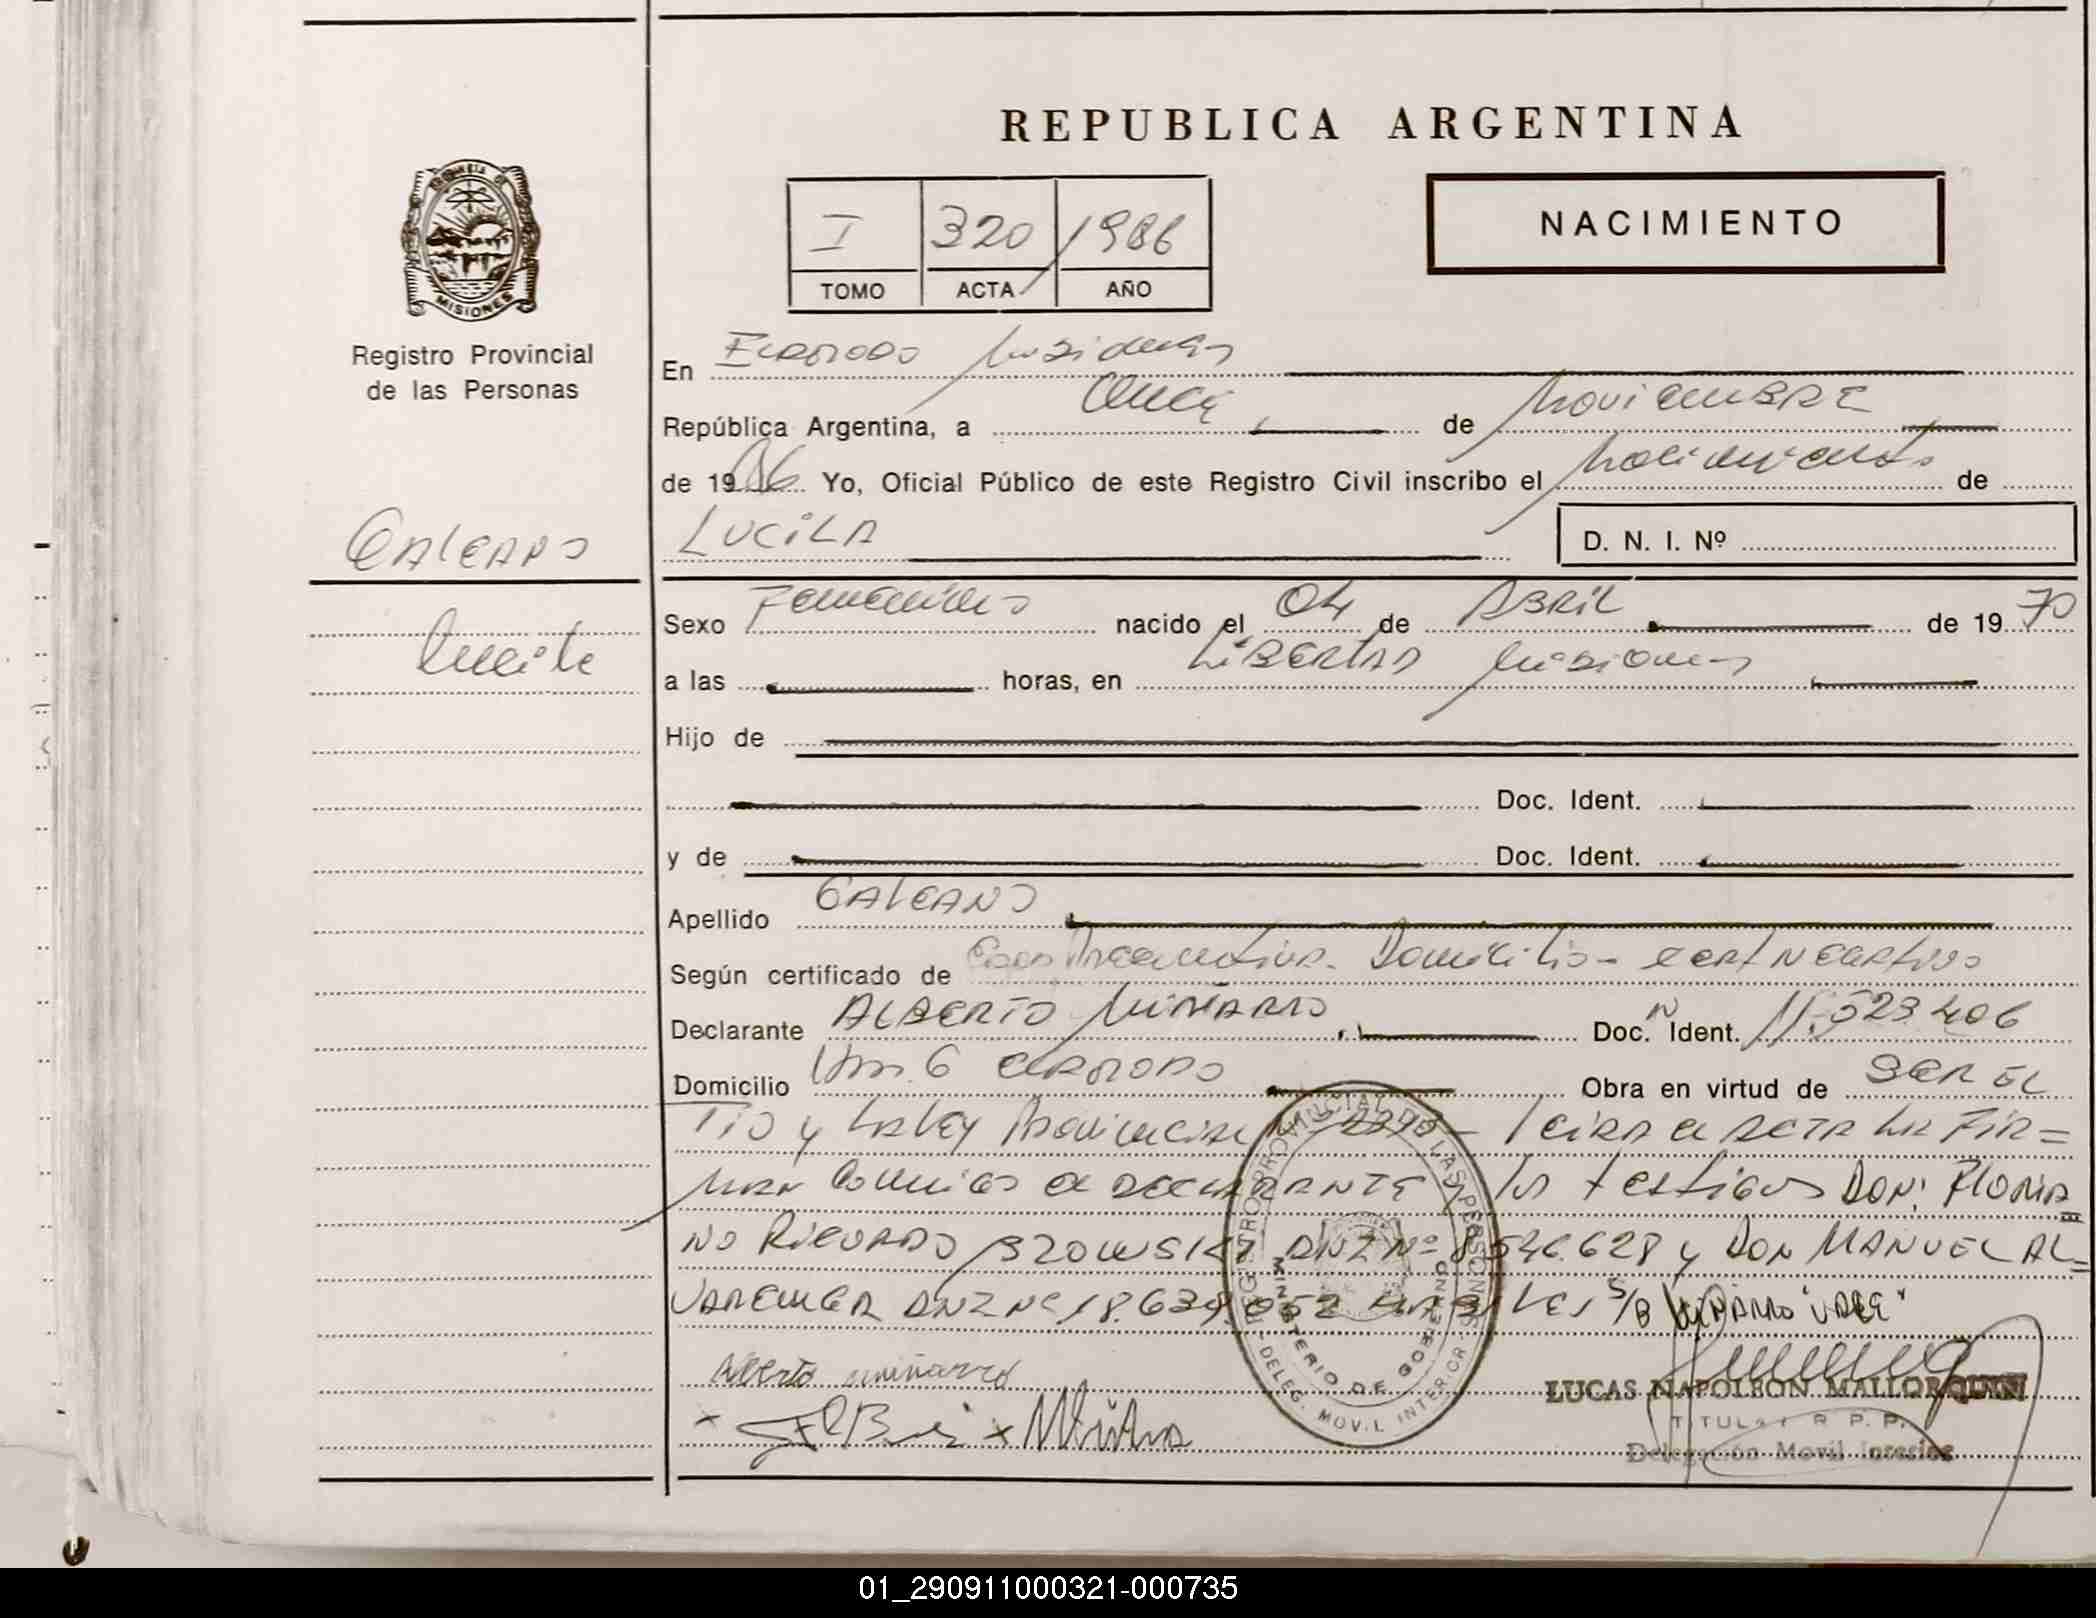 REPUBLICA ARGENTINA
NACIMIENTO
I 320 1986
TOMO ACTA AÑO
MISIONES
Registro Provincial
de las Personas
GALEANO
Lucila
En ELDORADO Misiones
República Argentina, a Once de Noviembre
de 1986 Yo, Oficial Público de este Registro Civil inscribo el Nacimiento de
LUCILA D. N. I. Nº
Sexo Femenino nacido el 04 de ABRIL de 1970
a las horas, en LIBERTAD Misiones
Hijo de
Doc. Ident.
y de Doc. Ident.
Apellido GALEANO
Según certificado de Domicilio
Declarante ALBERTO MIÑARRO Doc. Ident. 523.406
Domicilio Km. 6 ELDORADO Obra en virtud de SER EL
TIO y LA LEY Provincial LEIDA el ACTA LA FIR=
MAN Conmigo el DECLARANTE y los testigos DON: FLORIA
NO RICARDO DNI Nº 8.546.628 y DON MANUEL AL=
DNI Nº 18.639.052 HABILES S/B MIÑARRO "VALE"
Alberto miñarro
LUCAS NAPOLEON MALLORQUIN
TITULAR R. P. P.
Delegación Movil
REGISTRO PROVINCIAL DE LAS PERSONAS
MINISTERIO DE GOBIERNO
DELEG. MOVIL INTERIOR
01_290911000321-000735